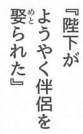 『陛下が
ようやく伴侶を
娶られた』